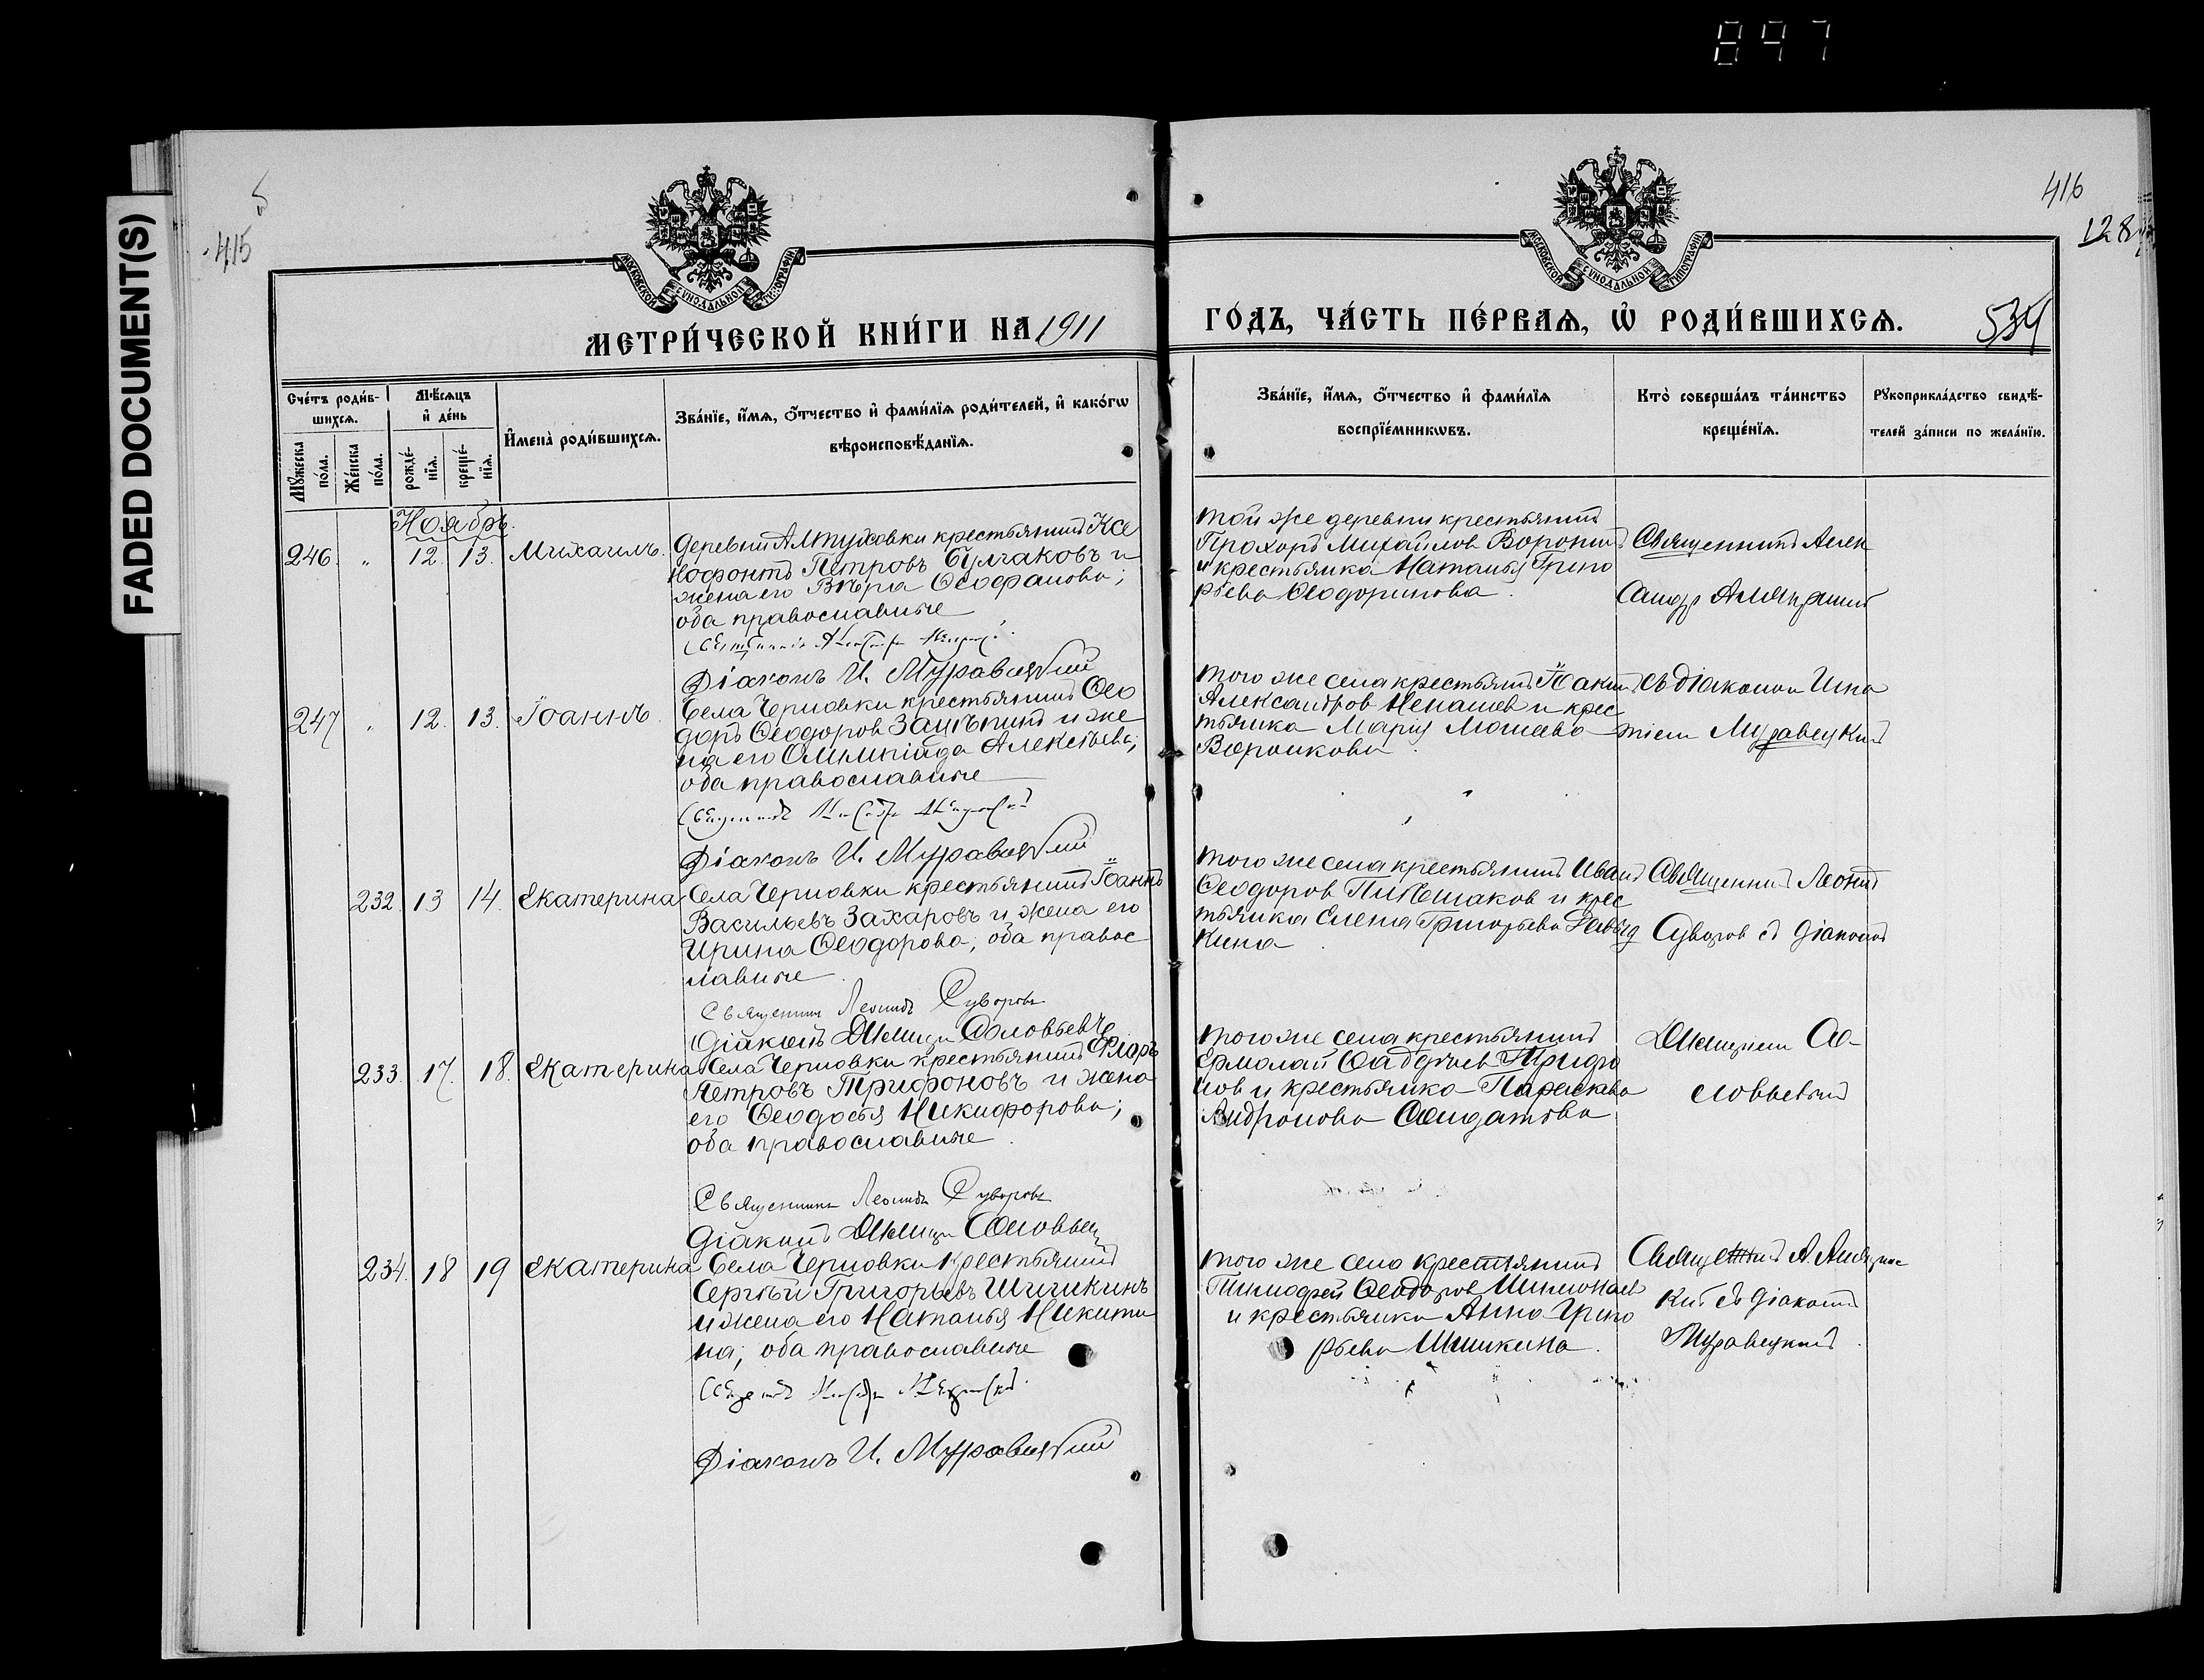 897
FADED DOCUMENT(S)
415
416
128
534
МОСКОВСКОЙ СѴНОДАЛЬНОЙ ТИПОГРАФІИ
МОСКОВСКОЙ СѴНОДАЛЬНОЙ ТИПОГРАФІИ
МЕТРИ́ЧЕСКОЙ КНИ́ГИ НА 1911
ГО́ДЪ, ЧА́СТЬ ПЕ́РВАѦ, Ѡ҆ РОДИ́ВШИХСѦ.
Сче́тъ роди́в-
шихсѧ.
Мꙋ́жеска по́ла.
Же́нска по́ла.
Мѣ́сѧцъ
и҆ де́нь
рожде́-
нїѧ.
креще́-
нїѧ.
И҆мена̀ роди́вшихсѧ.
Зва́нїе, и҆́мѧ, ѻ҆́тчество и҆ фами́лїѧ роди́телей, и҆ како́гѡ
вѣроисповѣ́данїѧ.
Зва́нїе, и҆́мѧ, ѻ҆́тчество и҆ фами́лїѧ
воспрїе́мникѡвъ.
Кто̀ соверша́лъ та́инство
креще́нїѧ.
Рꙋкоприкла́дство свидѣ́-
телей за́писи по жела́нїю.
Ноябрь.
246. " 12. 13. Михаилъ.
Деревни Алтуховки крестьянинъ Ксе
нофонтъ Петровъ Булгаковъ и
жена его Вѣра Ѳеофанова;
оба православные
Діаконъ И. Муравецкій
той же деревни крестьянинъ
Прохоръ Михайлов Воронин
и крестьянка Наталья Григо
рьева
Священникъ Алек
247 " 12. 13. Іоаннъ.
Села Черновки крестьянинъ Ѳео
доръ Ѳеодоров Зацѣпинъ и же
на его Олимпіада Алексѣева;
оба православные
Діаконъ И. Муравецкій
того же села крестьянинъ
Александров Ненашев и крес
тьянка Марія
съ діакономъ Игна
тіемъ Муравецкимъ
232. 13 14. Екатерина
Села Черновки крестьянинъ Іоаннъ
Васильевъ Захаровъ и жена его
Ирина Ѳеодорова; оба правос
лавные
Священникъ Леонидъ Суворовъ
Діаконъ Димитрій Соловьевъ
того же села крестьянинъ Иванъ
Ѳеодоров и крес
тьянка Елена Григорьева Давыд
кина
Священникъ Леонидъ
Суворов съ діакономъ
233. 17. 18. Екатерина
Села Черновки крестьянинъ Флоръ
Петровъ Трифоновъ и жена
его Ѳеодосья Никифорова;
оба православные.
Священникъ Леонидъ Суворовъ
Діаконъ Димитрій Соловьевъ
того же села крестьянинъ
Ермолай Трифо
нов и крестьянка Параскева
Андронова Солдатова
Димитріем Со-
ловьевым
234. 18 19 Екатерина
Села Черновки крестьянинъ
Сергѣй Григорьевъ Шишкинъ
и жена его Наталья Никити
на; оба православные
Діаконъ И. Муравецкій
того же села крестьянинъ
Тимофей Ѳеодоров
и крестьянка Анна Григо
рьева Шишкина.
Священникъ А.
съ діакономъ
Муравецкимъ.